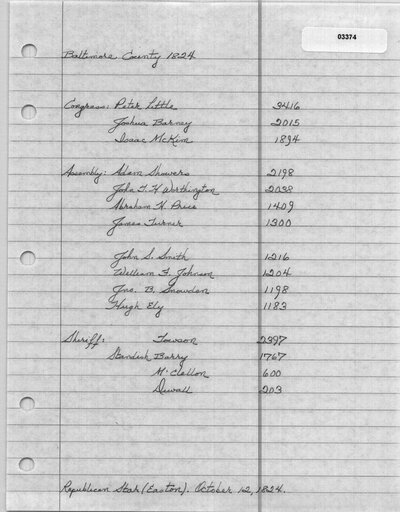 03374
Baltimore County 1824
Congress: Peter Little 3416
Joshua Barney 2015
Isaac McKim 1894
Assembly: Adam Showers 2198
John T. H Worthington 2038
Abraham H. Price 1409
James Turner 1300
John S. Smith 1216
William F. Johnson 1204
Jno. B. Snowden 1198
Hugh Ely 1183
Sheriff: Towson 2397
Standish Barry 1767
McClellon 600
Duvall 203
Republican Star (Easton). October 12, 1824.